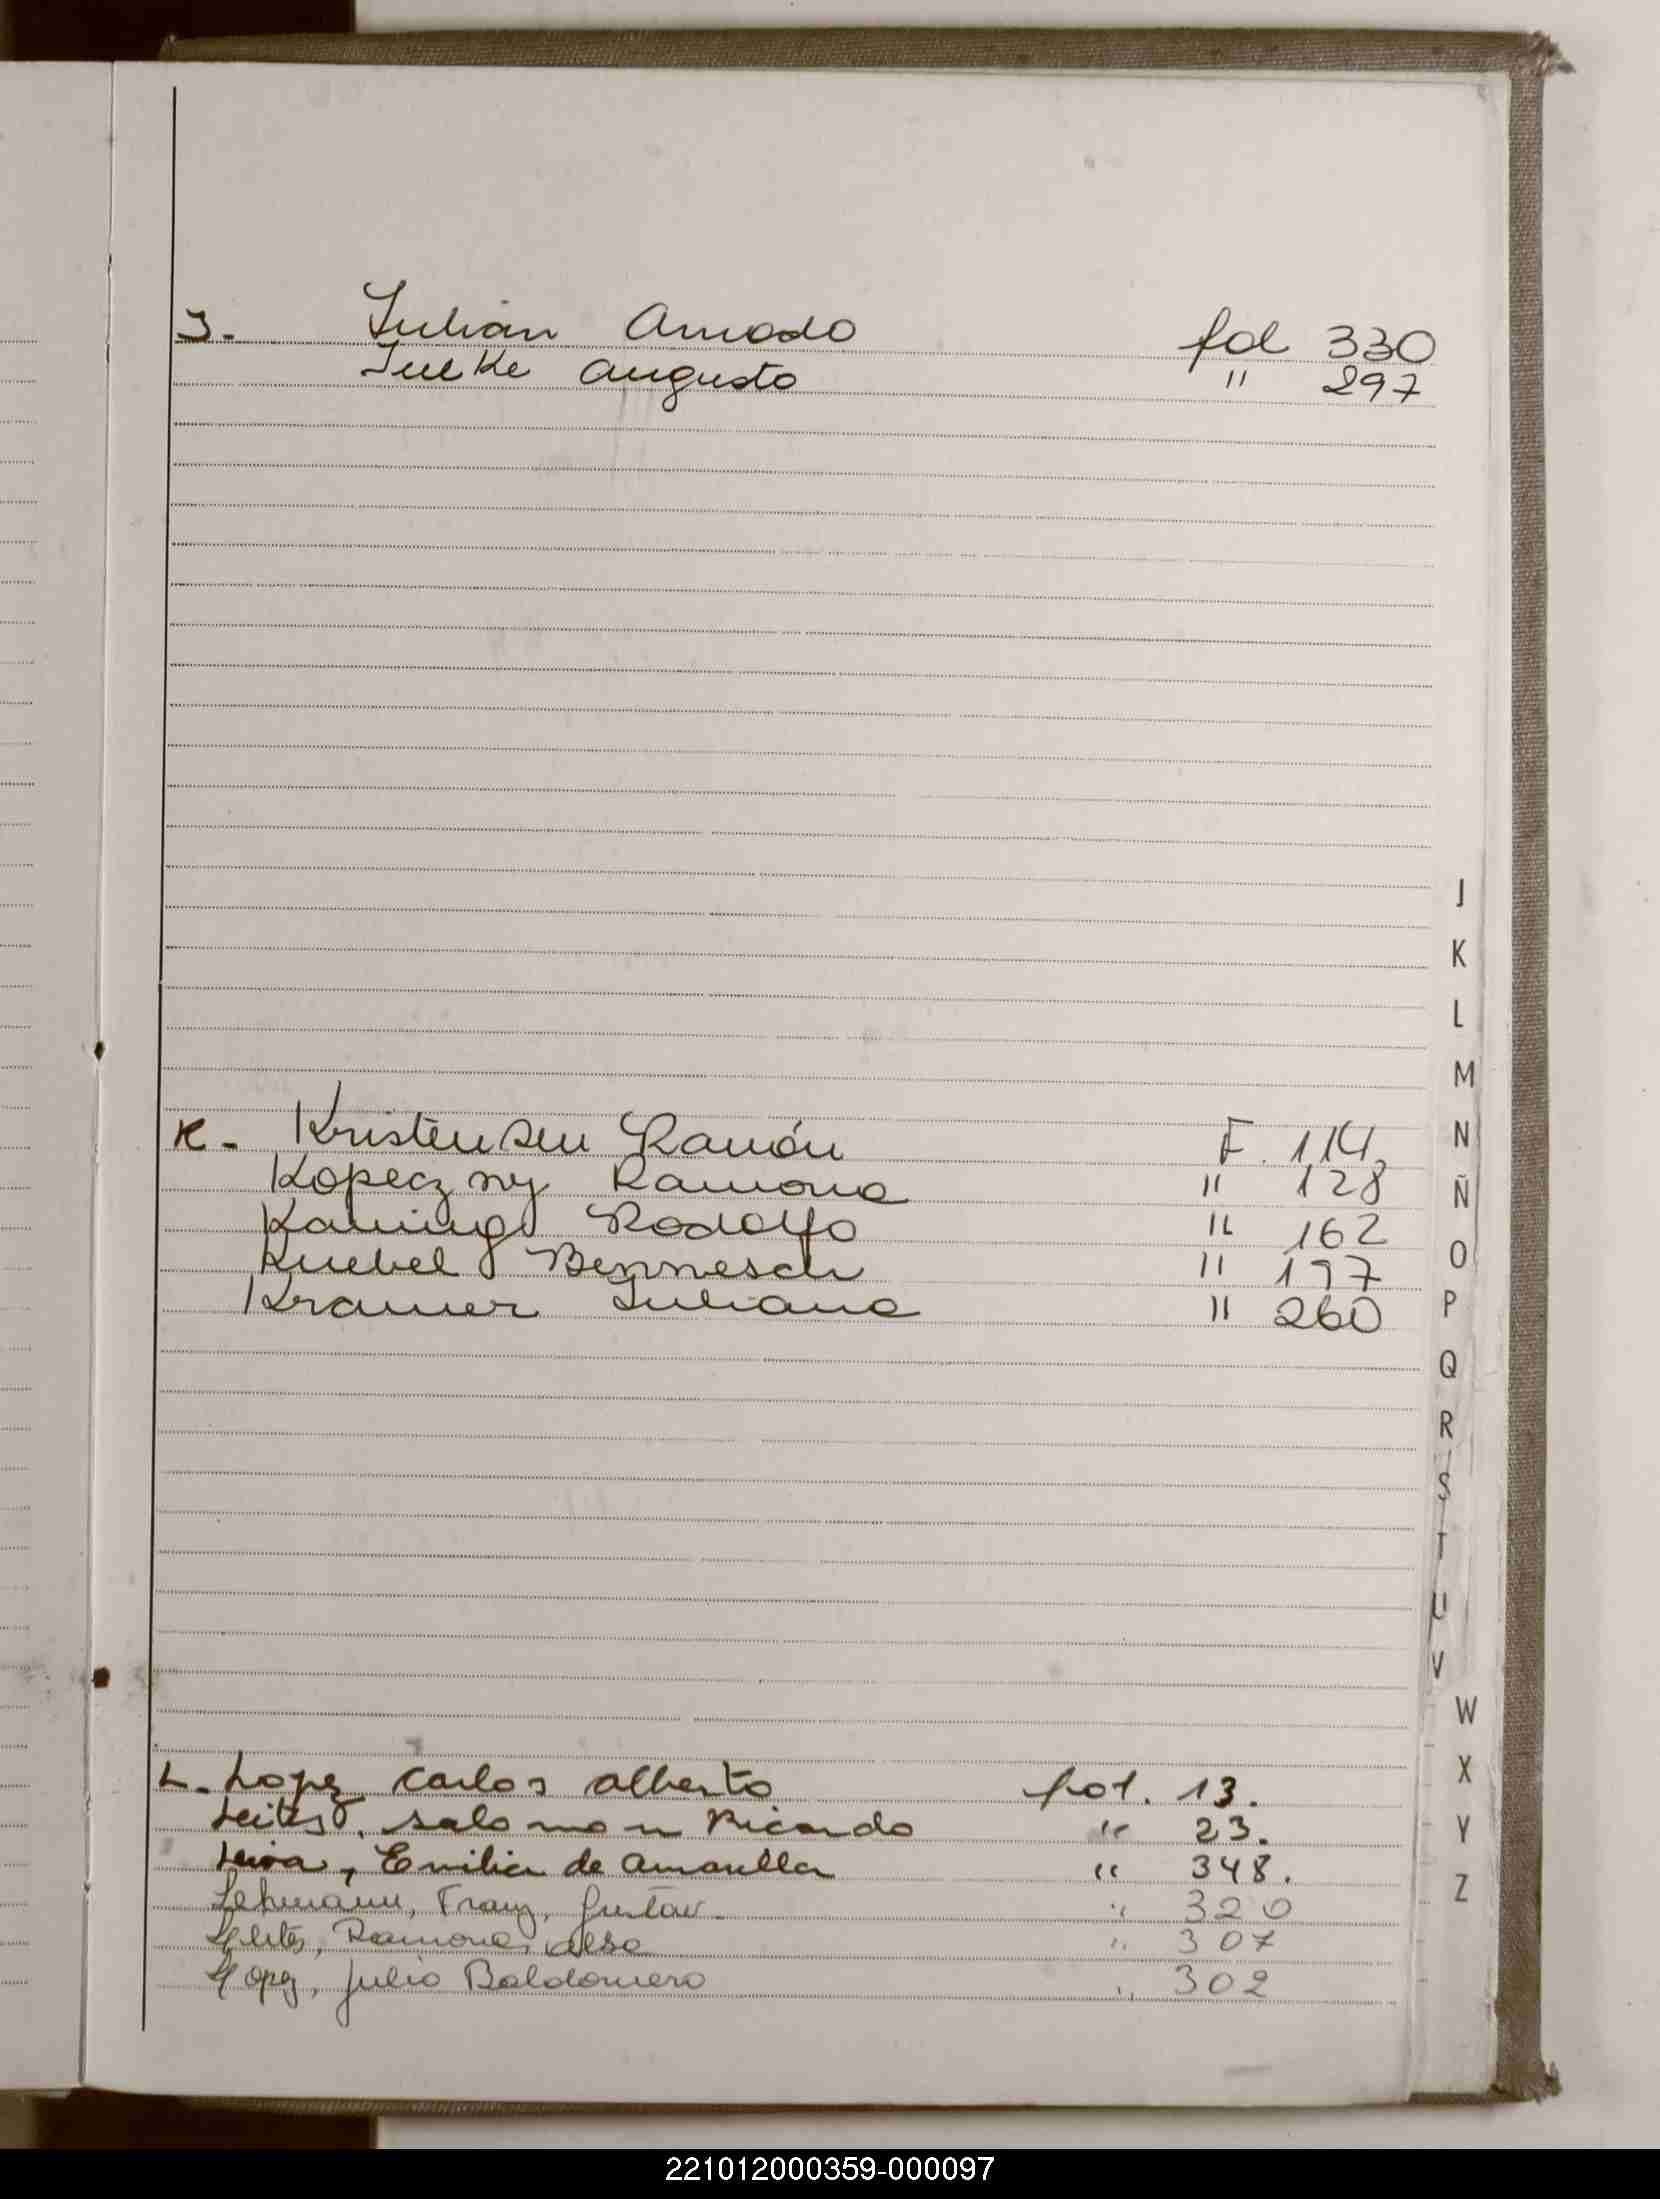 J. Julian Amado fol 330
Juelke Augusto " 297
K. Kristensen Ramón F. 114.
Kopeczny Ramona " 128
Kaming Rodolfo " 162
Kuebel Bennesch " 197
Kramer Juliana " 260
L. Lopez Carlos Alberto fol. 13.
Leites, Salomon Ricardo " 23.
Leiva, Emilia de Amarilla " 348.
Lehmann, Franz, Gustav " 320
Ramona, " 307
Lopez, Julio Baldomero " 302
J
K
L
M
N
Ñ
O
P
Q
R
S
T
U
V
W
X
Y
Z
221012000359-000097